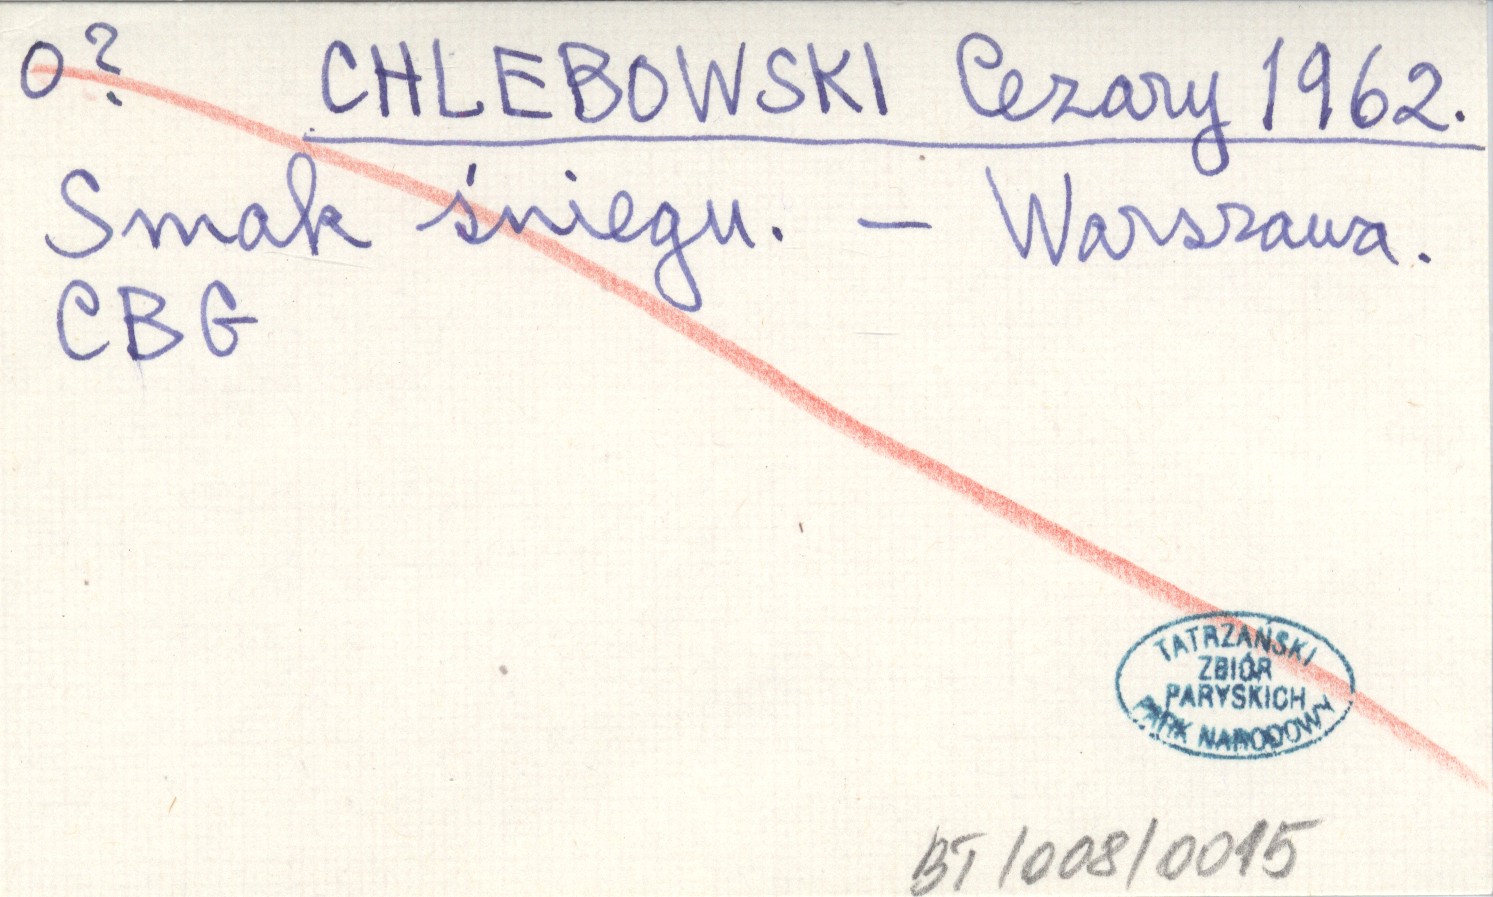 O? CHLEBOWSKI Cezary 1962.
Smak śniegu. – Warszawa.
CBG
TATRZAŃSKI
ZBIÓR
PARYSKICH
PARK NARODOWY
BT/008/0015